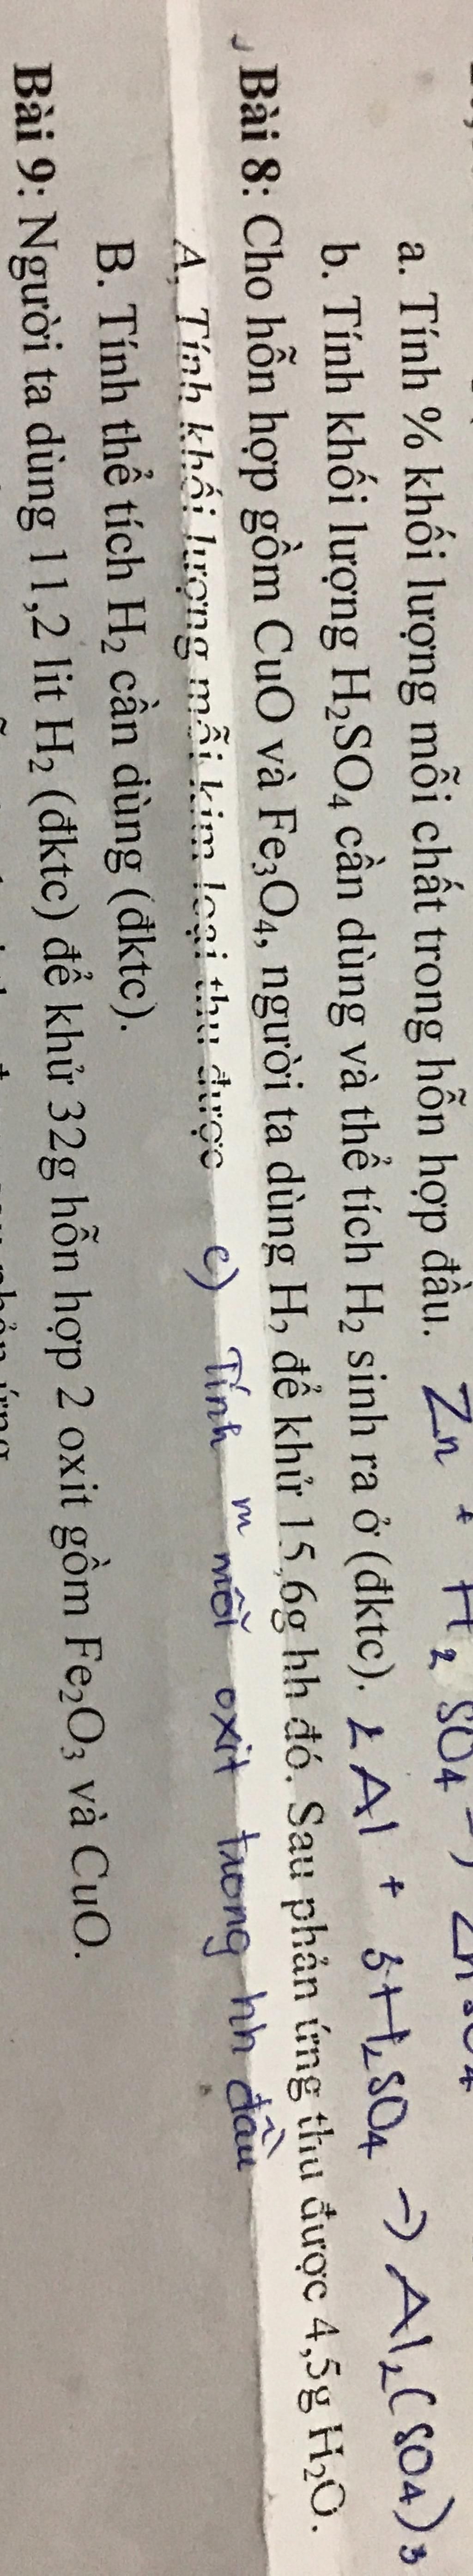 Zn + H₂SO₄ →
a. Tính % khối lượng mỗi chất trong hỗn hợp đầu.
b. Tính khối lượng H₂SO₄ cần dùng và thể tích H₂ sinh ra ở (đktc). 2Al + 3H₂SO₄ → Al₂(SO₄)₃
Bài 8: Cho hỗn hợp gồm CuO và Fe₃O₄, người ta dùng H₂ để khử 15,6g hh đó. Sau phản ứng thu được 4,5g H₂O.
A. Tính khối lượng mỗi kim loại thu được c) Tính m mỗi oxit trong hh đầu
B. Tính thể tích H₂ cần dùng (đktc).
Bài 9: Người ta dùng 11,2 lit H₂ (đktc) để khử 32g hỗn hợp 2 oxit gồm Fe₂O₃ và CuO.